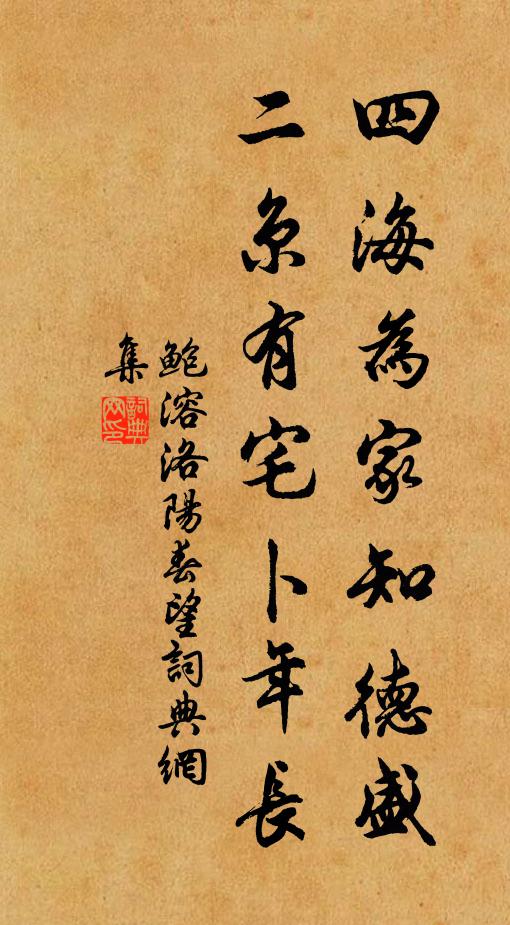 四海為家知德盛
二京有宅卜年長
鮑溶洛陽春望詞典網
集
詞典網印